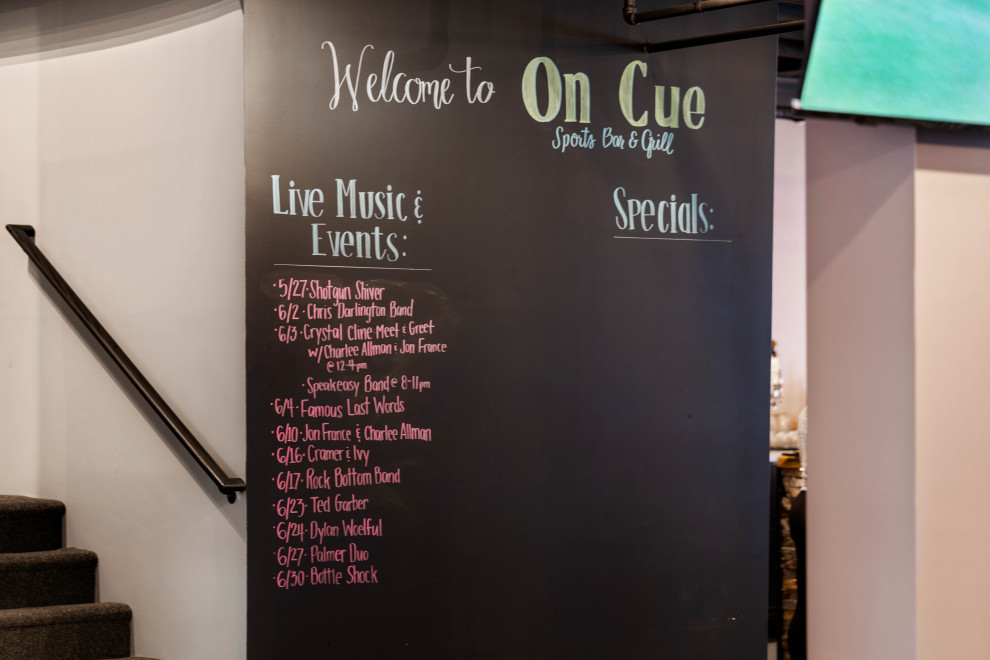 Welcome to On Cue
Sports Bar & Grill
Live Music &
Events:
· 5/27 · Shotgun Shiver
· 6/2 · Chris Darlington Band
· 6/3 · Crystal Cline Meet & Greet
w/ Charlee Allman & Jon France
@ 12-4pm
· Speakeasy Band @ 8-11pm
· 6/4 · Famous Last Words
· 6/10 · Jon France & Charlee Allman
· 6/16 · Cramer & Ivy
· 6/17 · Rock Bottom Band
· 6/23 · Ted Garber
· 6/24 · Dylan Woelful
· 6/27 · Palmer Duo
· 6/30 · Battle Shock
Specials: